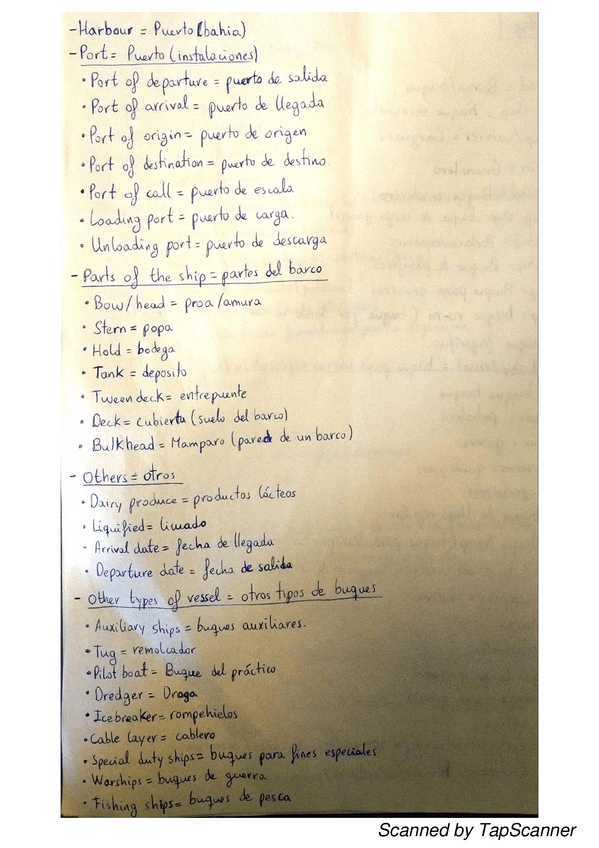 - Harbour = Puerto (bahia)
- Port = Puerto (instalaciones)
• Port of departure = puerto de salida
• Port of arrival = puerto de llegada
• Port of origin = puerto de origen
• Port of destination = puerto de destino.
• Port of call = puerto de escala
• Loading port = puerto de carga.
• Unloading port = puerto de descarga
- Parts of the ship = partes del barco
• Bow/head = proa/amura
• Stern = popa
• Hold = bodega
• Tank = deposito
• Tween deck = entrepuente
• Deck = cubierta (suelo del barco)
• Bulkhead = Mamparo (pared de un barco)
- Others = otros
• Dairy produce = productos lácteos
• Liquified = licuado
• Arrival date = fecha de llegada
• Departure date = fecha de salida
- Other types of vessel = otros tipos de buques
• Auxiliary ships = buques auxiliares.
• Tug = remolcador
• Pilot boat = Buque del práctico
• Dredger = Draga
• Icebreaker = rompehielos
• Cable layer = cablero
• Special duty ships = buques para fines especiales
• Warships = buques de guerra
• Fishing ships = buques de pesca
Scanned by TapScanner